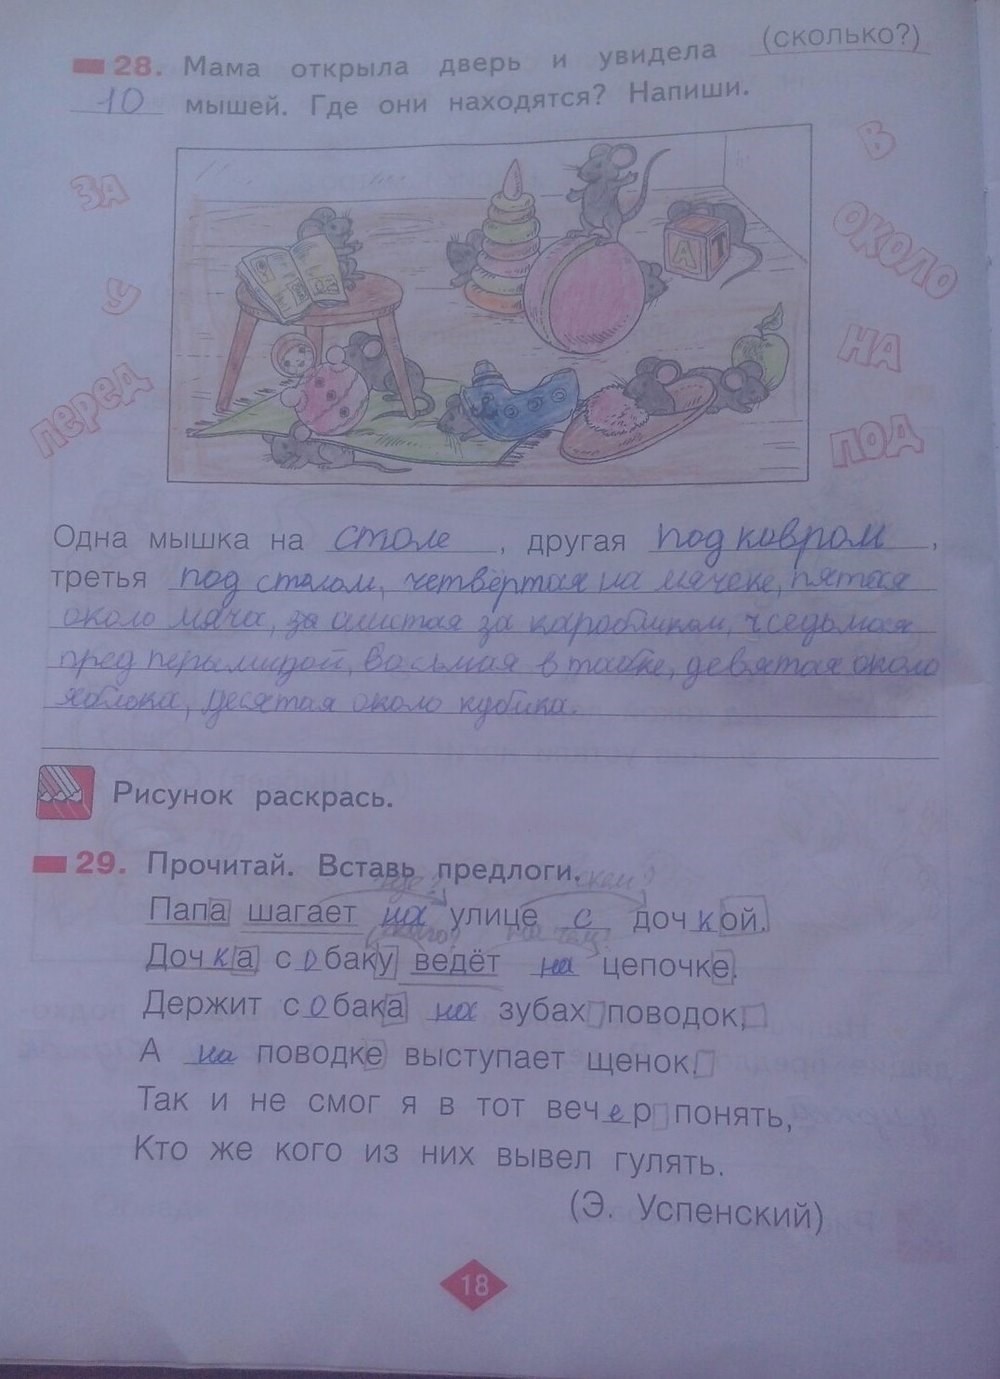 (сколько?)
28. Мама открыла дверь и увидела
10 мышей. Где они находятся? Напиши.
ЗА
В
У
ОКОЛО
ПЕРЕД
НА
ПОД
А Т
Одна мышка на столе, другая под ковром,
третья под столом, четвёртая на мячеке, пятая
около мяча, за шистая за каробликом, чседьмая
пред перымидой, восьмая в тапке, девятая около
яблока, десятая около кубика.
Рисунок раскрась.
29. Прочитай. Вставь предлоги.
где? с кем?
Папа шагает на улице с дочкой.
кого? на чём?
Дочка собаку ведёт на цепочке.
Держит собака на зубах поводок,
А на поводке выступает щенок.
Так и не смог я в тот вечер понять,
Кто же кого из них вывел гулять.
(Э. Успенский)
18